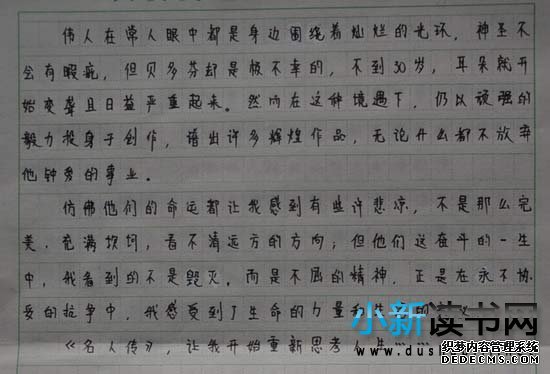 伟人在常人眼中都是身边围绕着灿烂的光环,神圣不
会有瑕疵,但贝多芬却是极不幸的,不到30岁,耳朵就开
始变聋且日益严重起来。然而在这种境遇下,仍以顽强的
毅力投身于创作,谱出许多辉煌作品,无论什么都不放弃
他钟爱的事业。
仿佛他们的命运都让我感到有些许悲凉,不是那么完
美.充满坎坷,看不清远方的方向;但他们这奋斗的一生
中,我看到的不是毁灭,而是不屈的精神,正是在永不协
妥的抗争中,我感受到了生命的力量和
小新读书网
《名人传》,让我开始重新思考人生……
织梦内容管理系统
DEDECMS.COM